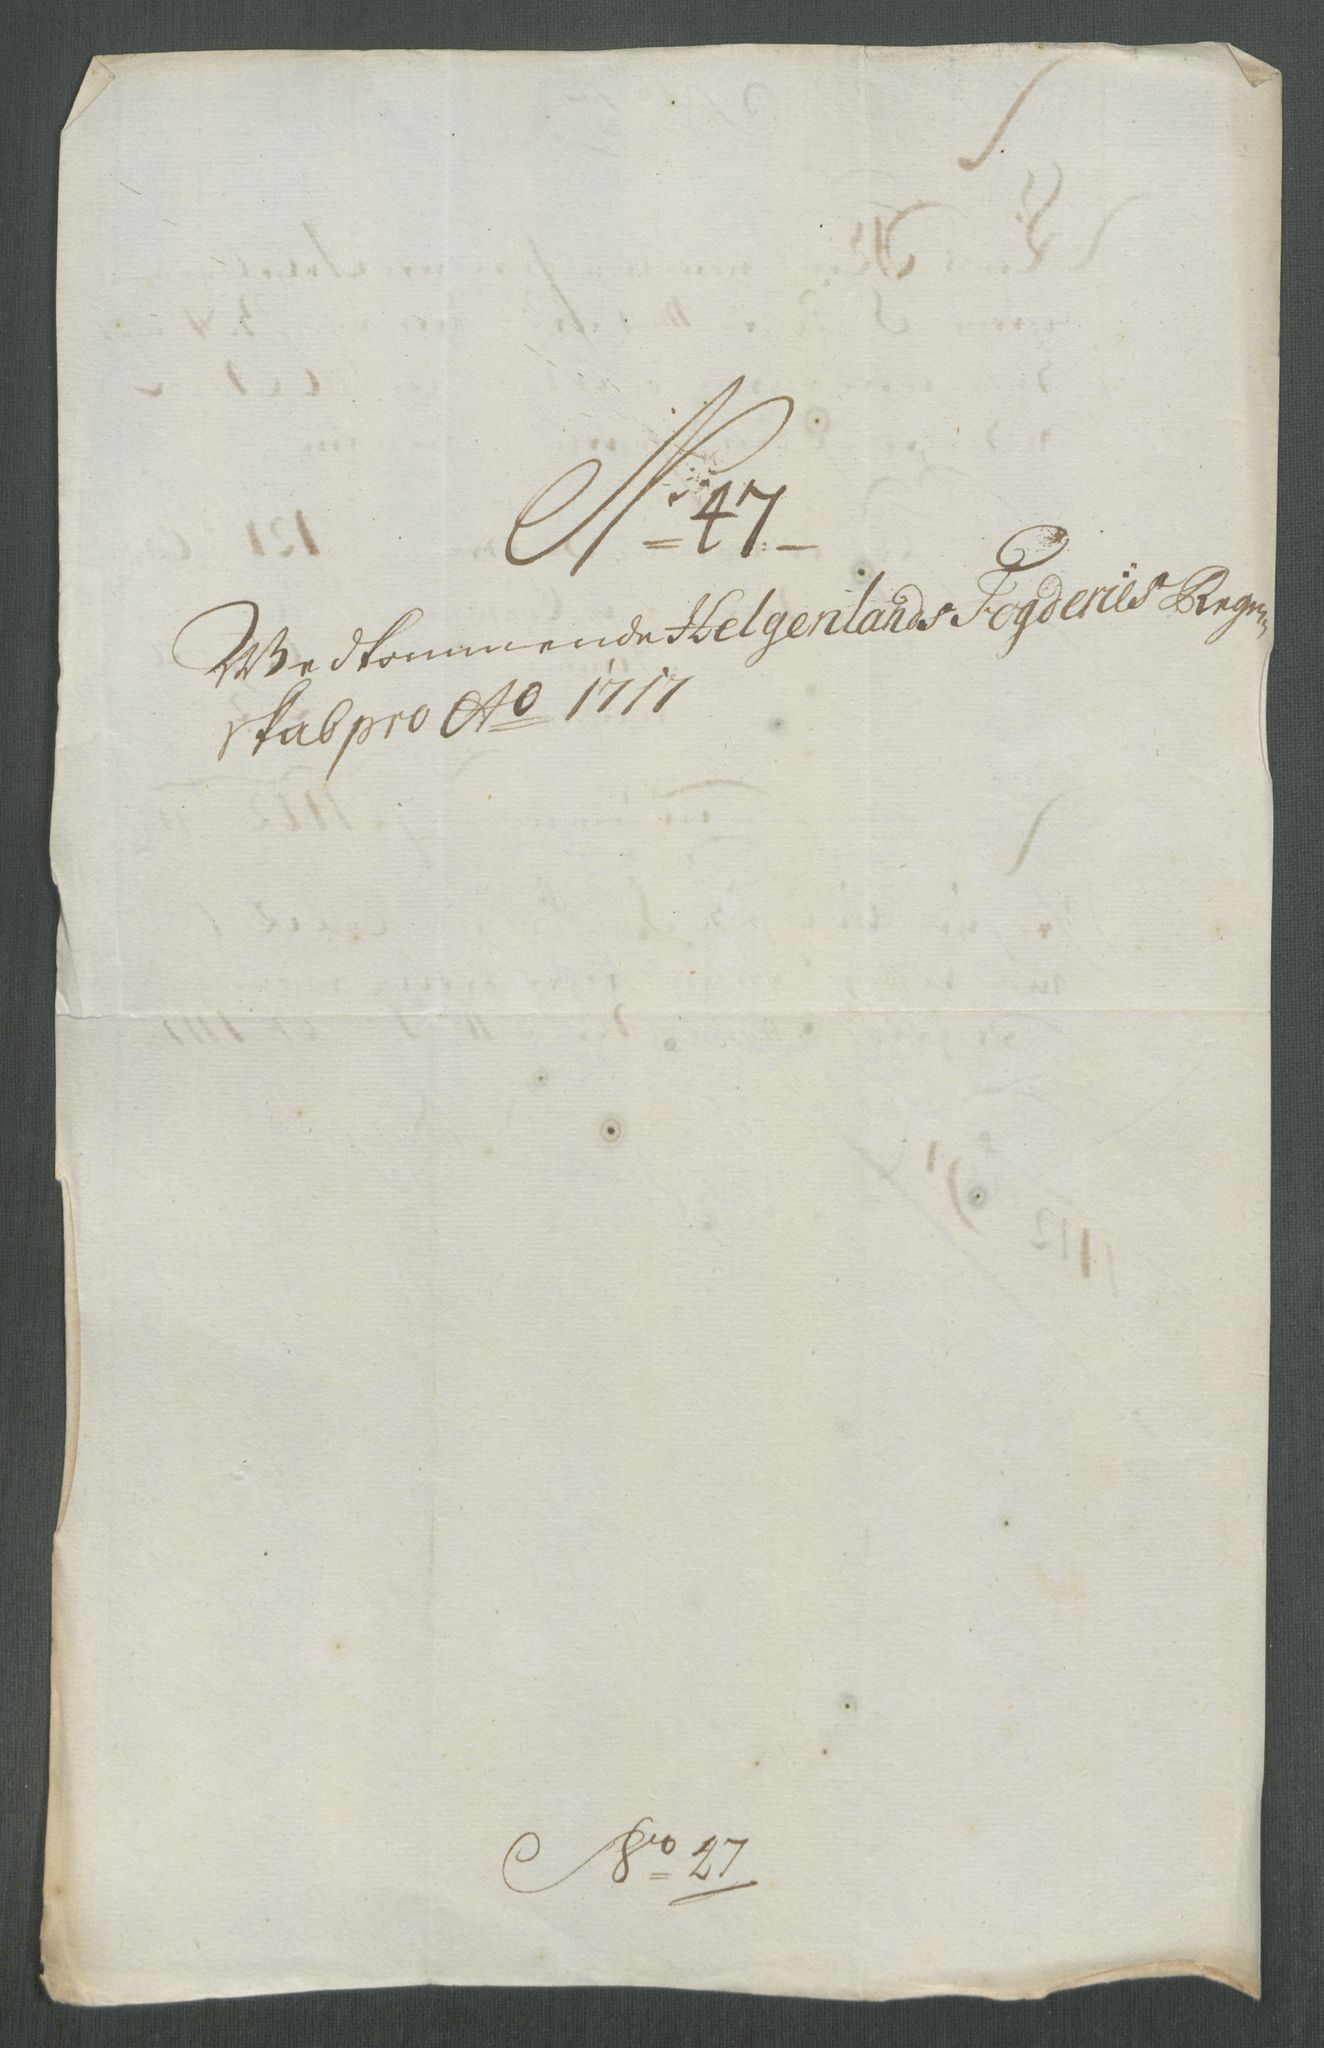 N: 47
Wedkommende Helgenlands Fogderiies Regn-
skab pro Ao 1717
Nro 27